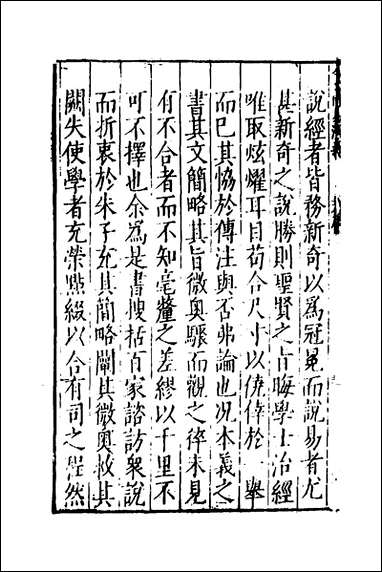 說經者皆務新奇以為冠冕而說易者尤
甚新奇之說勝則聖賢之旨晦學士治經
唯取炫燿耳目苟合尺寸以僥倖於 舉
而已其恊於傳注與否弗論也况本義之
書其文簡略其旨微奥驟而觀之稡未見
有不合者而不知毫釐之差繆以千里不
可不擇也余為是書捜括百家諮訪衆說
而折衷於朱子充其簡略闡其微奥救其
闕失使學者充榮點綴以合有司之程然